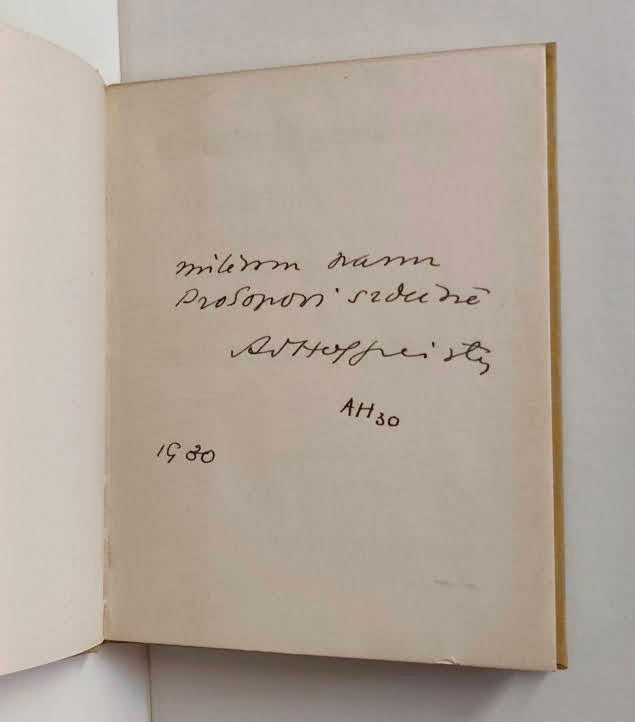 milému panu
Prokopovi srdečně
AdHoffmeister
AH30
1930